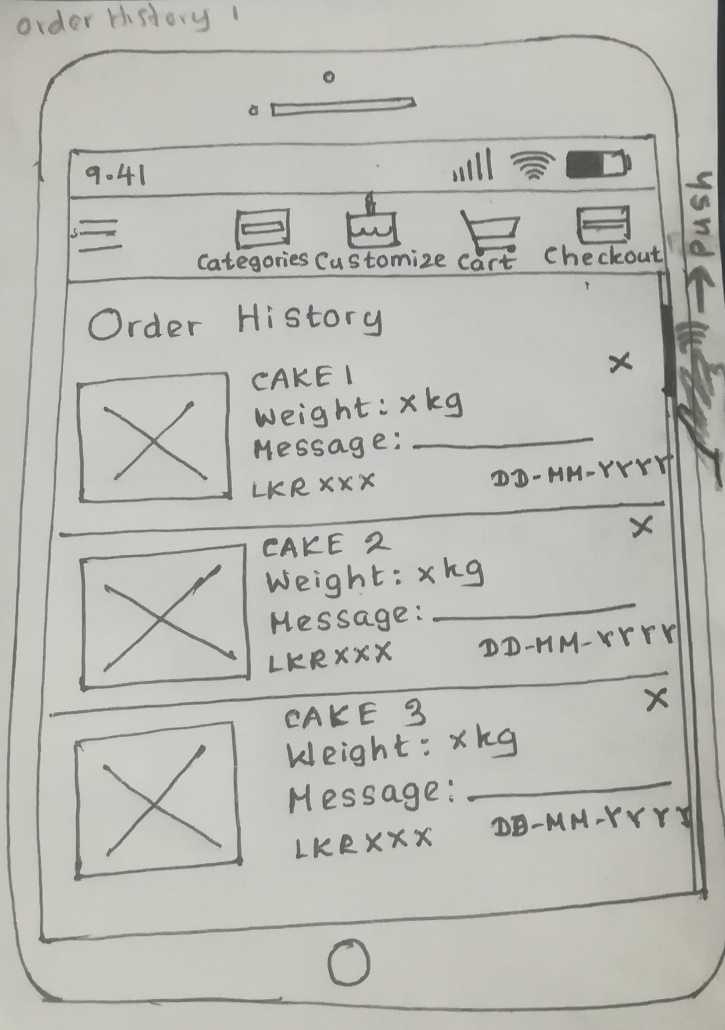 Order History 1
9.41
Categories Customize Cart Checkout
Order History
CAKE 1 X
Weight: x kg
Message:
LKR XXX DD-MM-YYYY
CAKE 2 X
Weight: x kg
Message:
LKR XXX DD-MM-YYYY
CAKE 3 X
Weight: x kg
Message:
LKR XXX DD-MM-YYYY
push